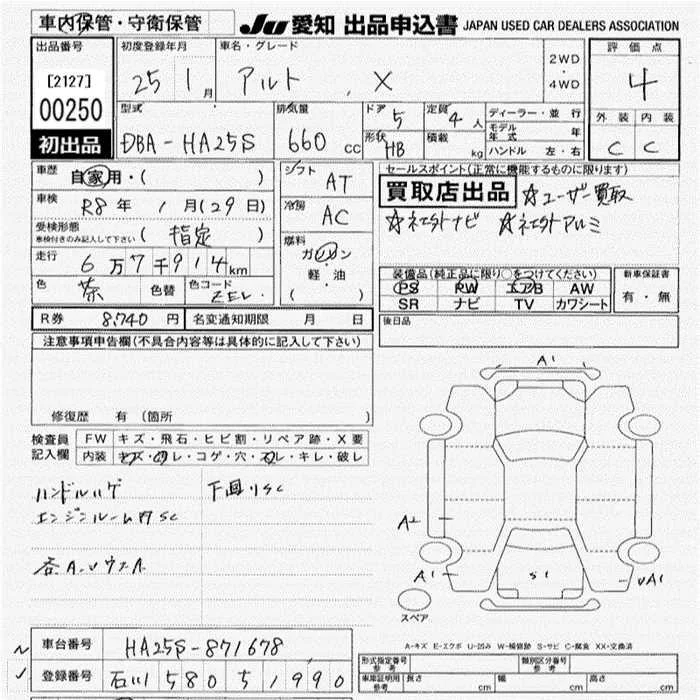 車内保管・守衛保管
JU 愛知 出品申込書 JAPAN USED CAR DEALERS ASSOCIATION
出品番号 初度登録年月 車名・グレード 評価点
[2127] 25 1月 アルト X 2WD・4WD 4
00250
初出品
型式 排気量 ドア 5 定員 4人 ディーラー・並行 外装 内装
DBA-HA25S 660cc 形状 HB 積載 kg モデル年式 年 C C
ハンドル 左・右
車歴 自家用・( ) シフト AT セールスポイント(正常に機能するものに限ります)
車検 R8年 1月(29日) 冷房 AC 買取店出品 ☆ユーザー買取
受検形態 車検付きのみ記入して下さい (指定) 燃料 ガソリン・軽油 ( )
走行 6万7千914km
装備品(純正品に限り○をつけてください) 新車保証書
PS PW エアB AW 有・無
SR ナビ TV カワシート
色 茶 色替 色コード
R券 8,740円 名変通知期限 月 日 後日品
注意事項申告欄(不具合内容等は具体的に記入して下さい)
修復歴 有 (箇所 )
検査員記入欄 FW キズ・飛石・ヒビ割・リペア跡・X要
内装 キズ・汚レ・コゲ・穴・スレ・キレ・破レ
ハンドルハゲ 下回りSC
エンジンルーム内SC
A1
A2
A1 S1 UA1
スペア
A-キズ E-エクボ U-凹み W-補修跡 S-サビ C-腐食 XX-交換済
車台番号 HA25S-871678
登録番号 石川 580 う 1990
形式指定番号 参考 類別区分番号 参考
車庫証明用 参考 長さ cm 幅 cm 高さ cm